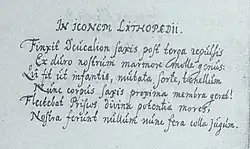 IN ICONEM LITHOPÆDII.
Finxit Deucalion saxis post terga repulsis
Ex duro nostrum marmore molle genus:
Qui fit ut infantis, mutata sorte, tenellum
Nunc corpus saxis proxima membra gerat?
Flectebat Priscus divina potentia mores,
Nostra ferunt nullum nunc fera colla jugum.